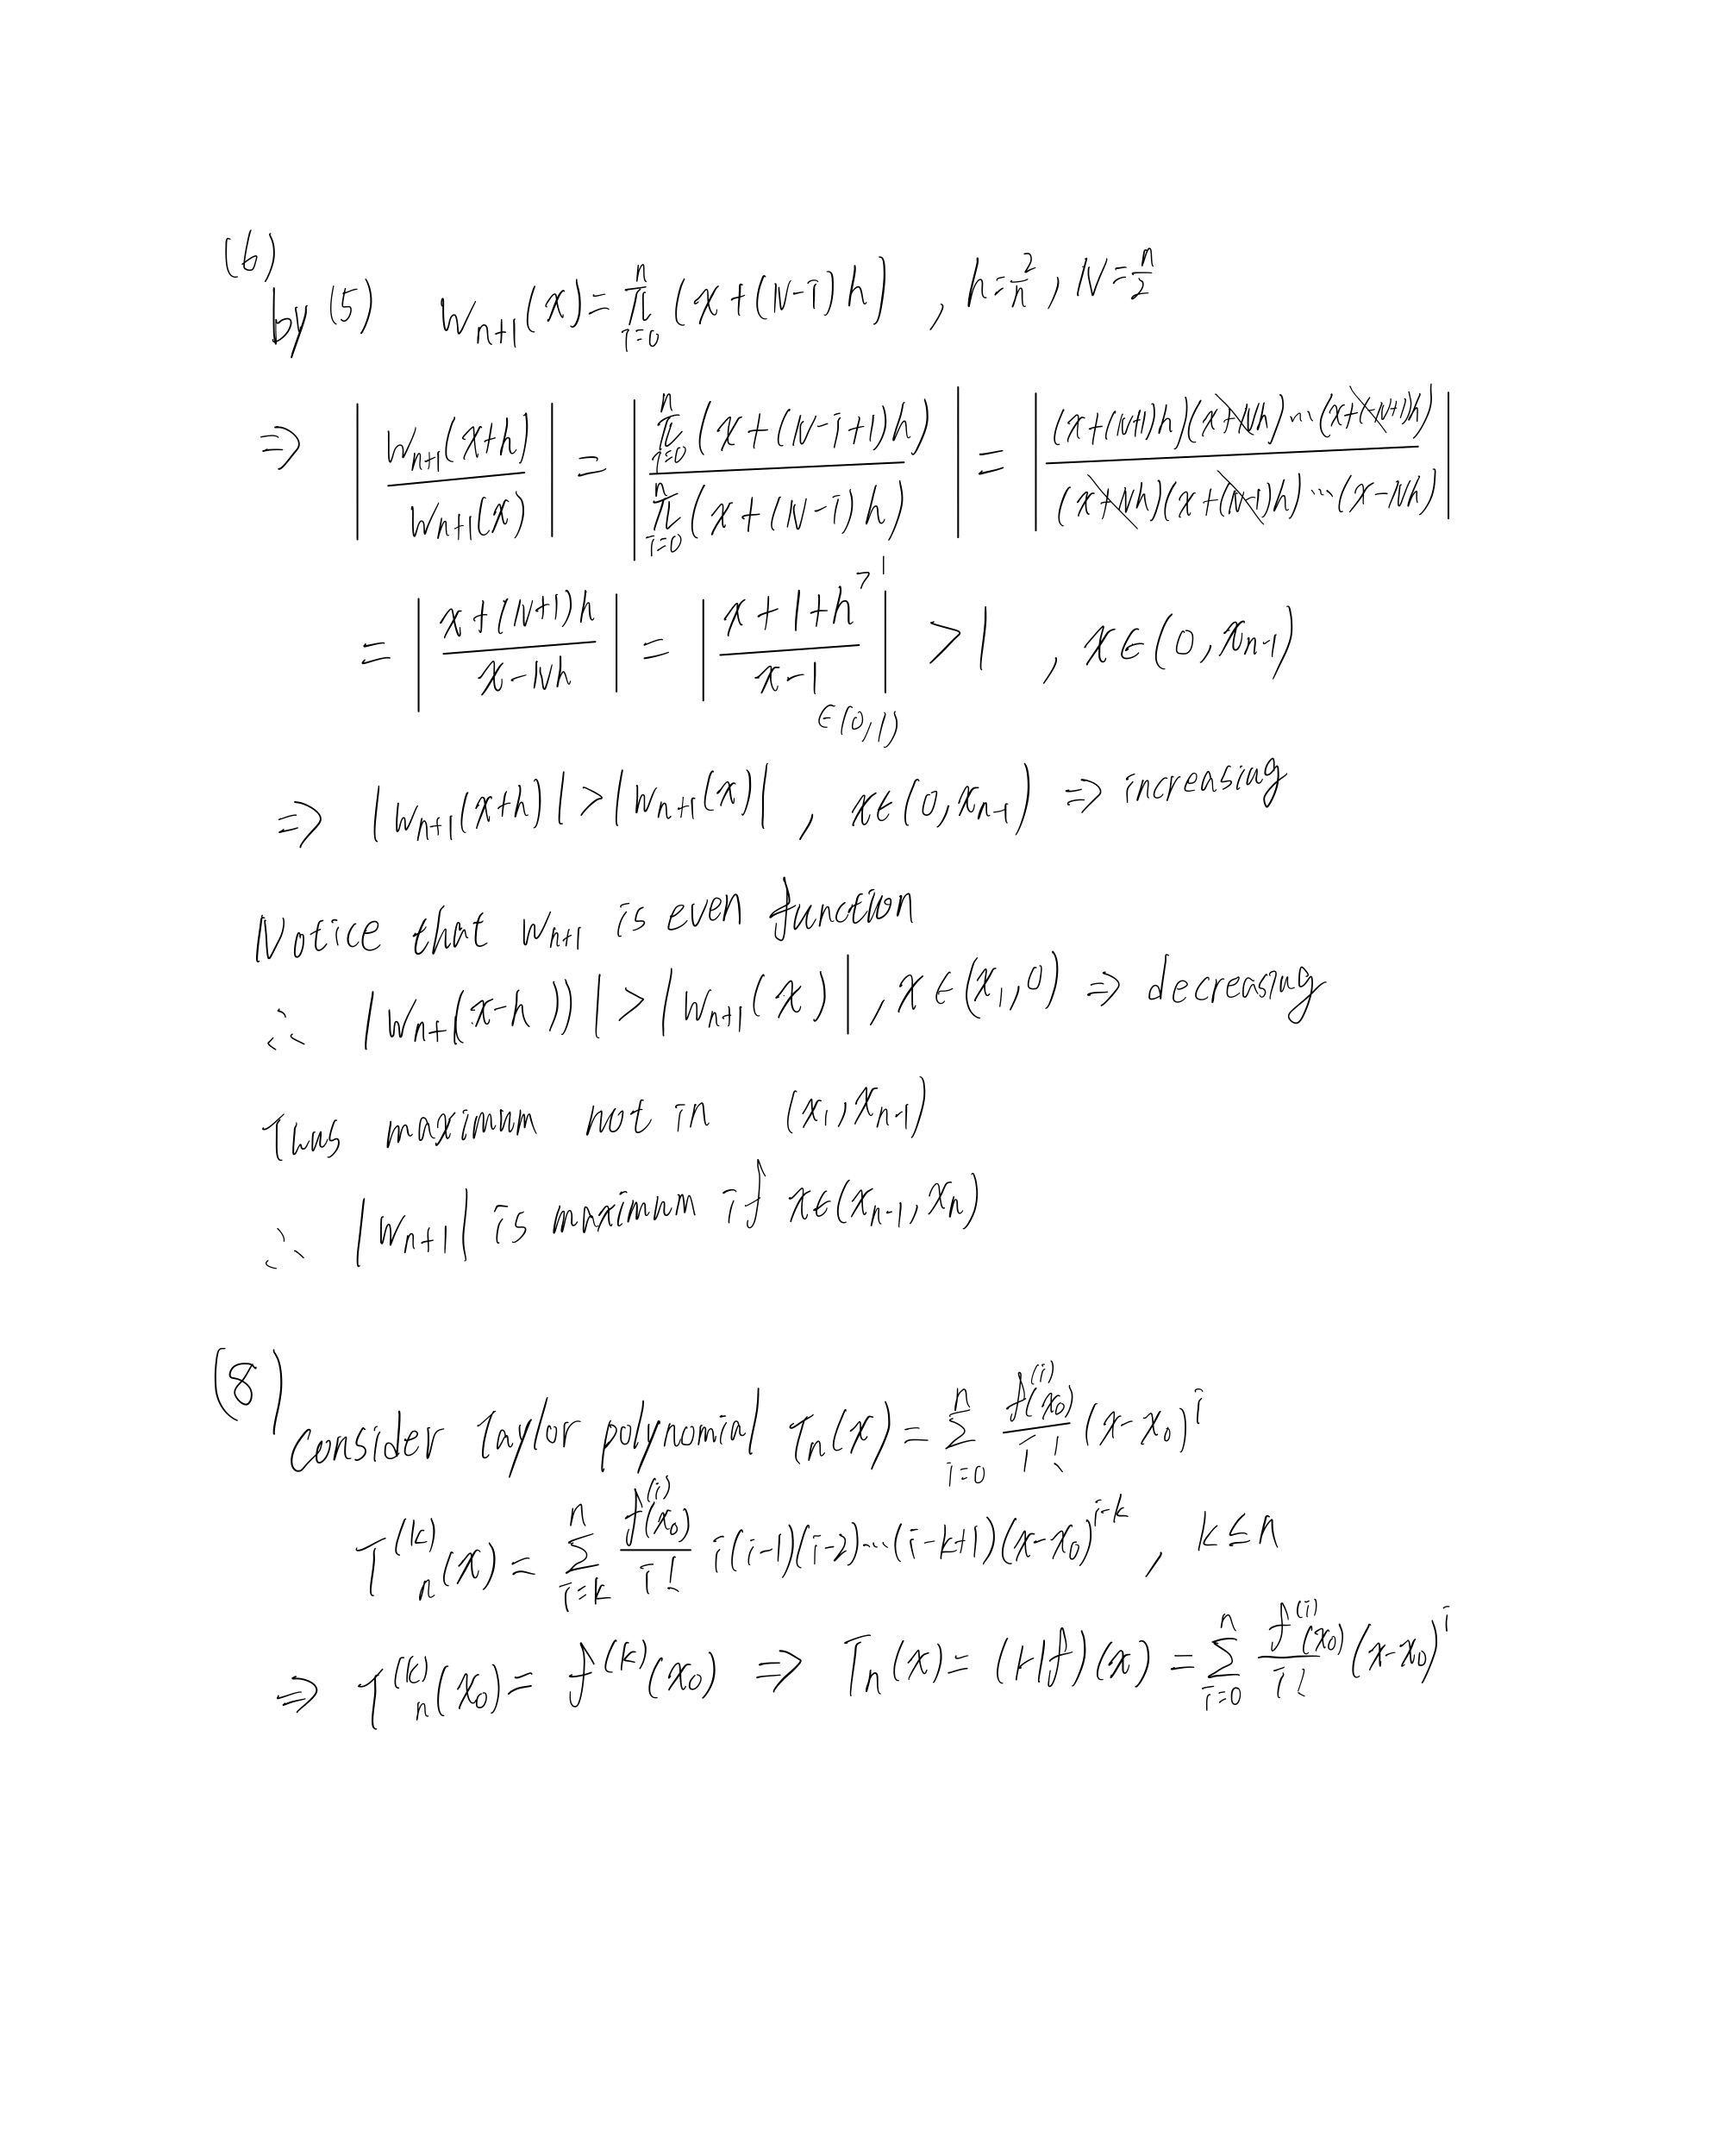 (6)
by (5) w_{n+1}(x) = π_{i=0}^{n} (x+(N-i)h) , h=2/n , N=n/2
⇒ |w_{n+1}(x+h) / w_{n+1}(x)| = |π_{i=0}^{n} (x+(N-i+1)h) / π_{i=0}^{n} (x+(N-i)h)| = |(x+(N+1)h)(x+Nh)···(x+(-N+1)h) / (x+Nh)(x+(N-1)h)···(x-Nh)|
= |x+(N+1)h / x-Nh| = |x+1+h / x-1| > 1 , x∈(0,x_{n-1})
>1
∈(0,1)
⇒ |w_{n+1}(x+h)| > |w_{n+1}(x)| , x∈(0,x_{n-1}) ⇒ increasing
Notice that w_{n+1} is even function
∴ |w_{n+1}(x-h))| > |w_{n+1}(x)| , x∈(x_1,0) ⇒ decreasing
Thus maximum not in (x_1,x_{n-1})
∴ |w_{n+1}| is maximum if x∈(x_{n-1},x_n)
(8)
Consider Taylor polynomial T_n(x) = Σ_{i=0}^{n} f^{(i)}(x_0)/i! (x-x_0)^i
T^{(k)}_n(x) = Σ_{i=k}^{n} f^{(i)}(x_0)/i! i(i-1)(i-2)···(i-k+1)(x-x_0)^{i-k} , k≤n
⇒ T^{(k)}_n(x_0) = f^{(k)}(x_0) ⇒ T_n(x) = (Hf)(x) = Σ_{i=0}^{n} f^{(i)}(x_0)/i! (x-x_0)^i